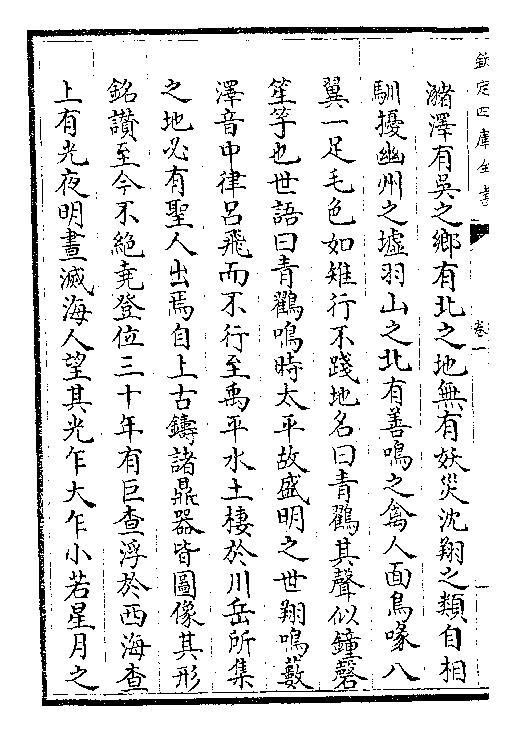 欽定四庫全書
卷一
瀦澤有吳之鄉有北之地無有妖災沈翔之類自相
馴擾幽州之墟羽山之北有善鳴之禽人面鳥喙八
翼一足毛色如雉行不踐地名曰青鸛其聲似鐘磬
笙竽也世語曰青鸛鳴時太平故盛明之世翔鳴藪
澤音中律呂飛而不行至禹平水土棲於川岳所集
之地必有聖人出焉自上古鑄諸鼎器皆圖像其形
銘讚至今不絕堯登位三十年有巨查浮於西海查
上有光夜明晝滅海人望其光乍大乍小若星月之